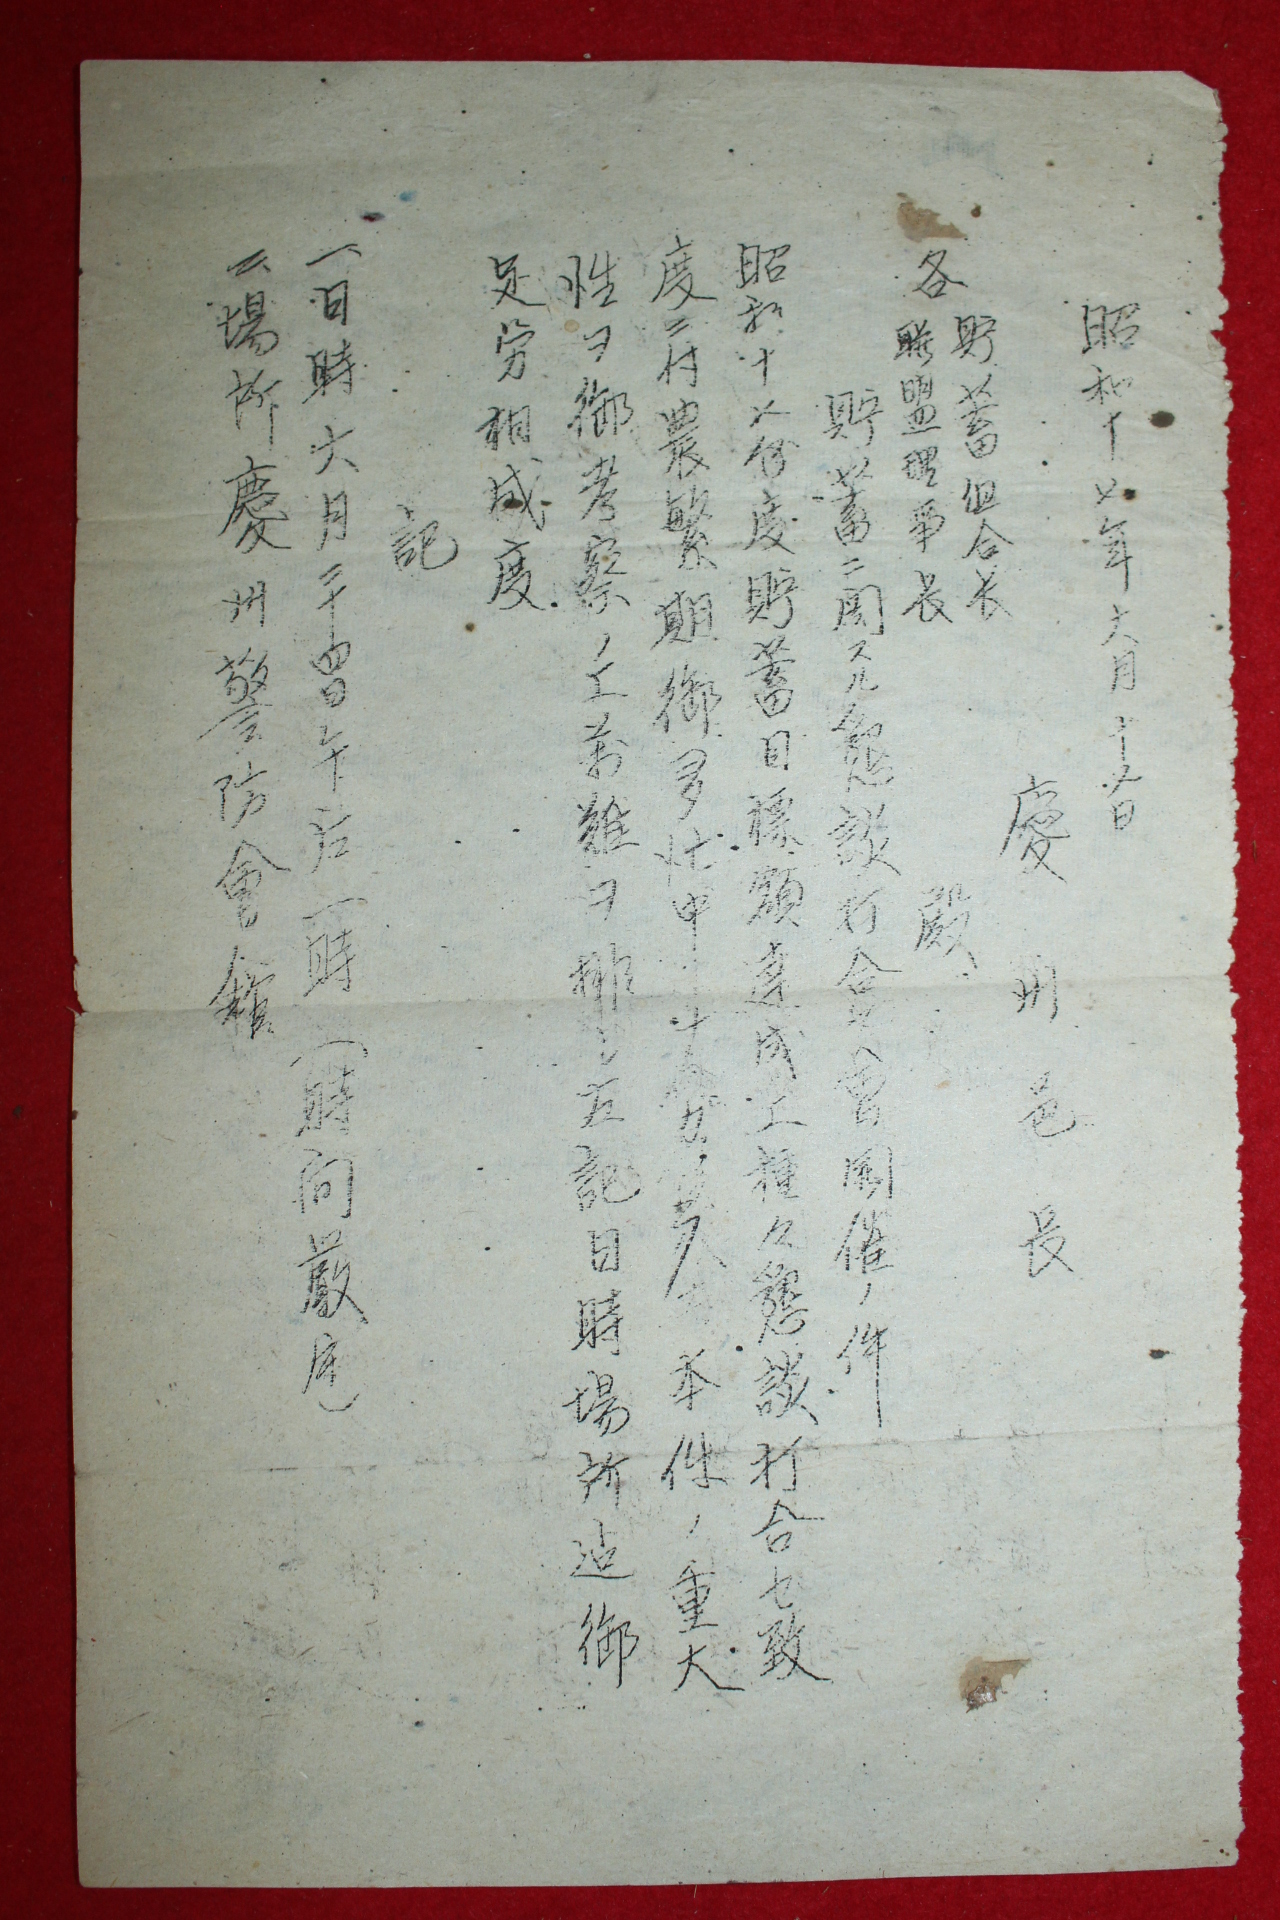 昭和十七年六月十七日
慶州邑長
各貯蓄組合長
聯盟理事長
殿
貯蓄ニ関スル懇談打合会開催ノ件
昭和十七年度貯蓄目標額達成上種々懇談打合セ致
度ニ付農繁期御多忙中 本件ノ重大
性ヲ御考察ノ上萬難ヲ排シ左記日時場所迠御
足労相成度
記
一日時六月二十四日午后一時(時間厳守)
二場所慶州警防會館